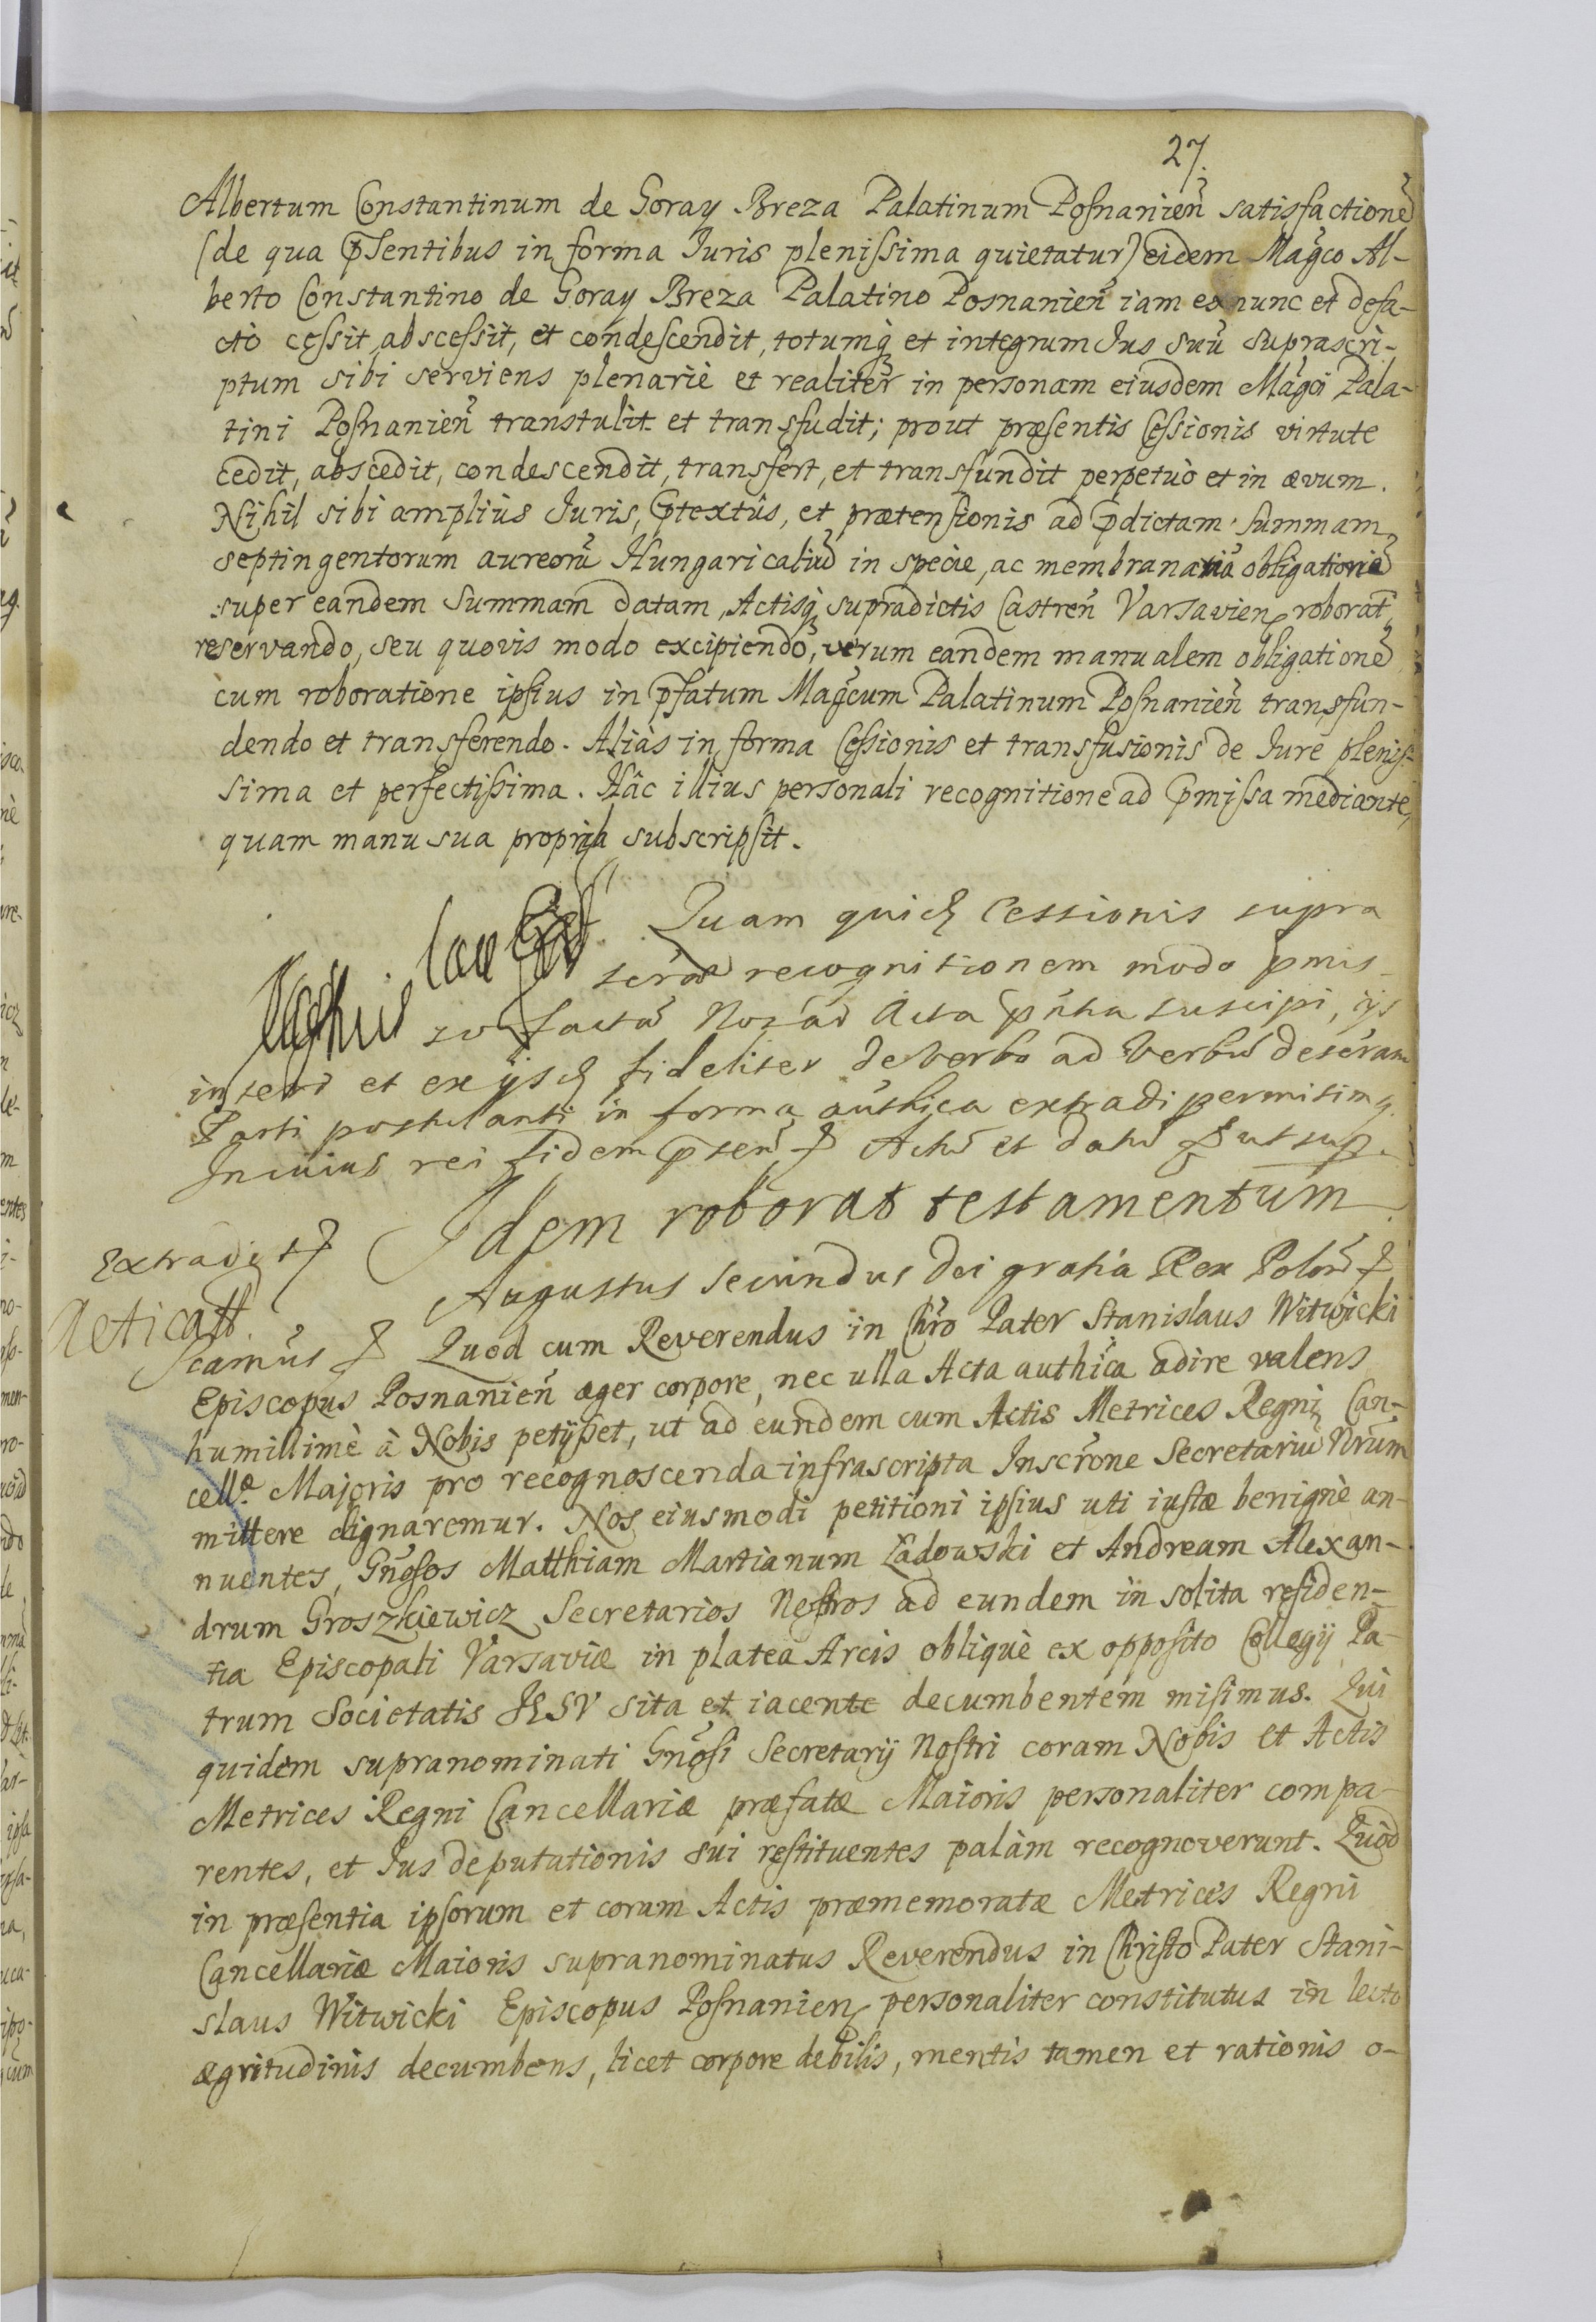 27.
Albertum Constantinum de Goray Breza Palatinum Posnanień satisfactionē
(de qua p̄sentibus in forma Juris plenissima quietatur) eidem Magco Al-
berto Constantino de Goray Breza Palatino Posnanień iam ex nunc et defa-
cto cessit, abscessit, et condescendit, totumq; et integrum Jus suū suprascri-
ptum sibi serviens plenariè et realiter in personam eiusdem Magci Pala-
tini Posnanień transtulit et transfudit; prout præsentis Cessionis virtute
cedit, abscedit, condescendit, transfert, et transfundit perpetuò et in ævum.
Nihil sibi ampliùs Juris, p̄textûs, et prætensionis ad p̄dictam summam
septingentorum aureorū Hungaricaliū in specie, ac membranariā obligationē
super eandem summam datam, Actisq; supradictis Castreń Varsavien roborat,
reservando, seu quovis modo excipiendo, verum eandem manualem obligationē
cum roboratione ipsius in p̄fatum Magcum Palatinum Posnanień transfun-
dendo et transferendo. Aliàs in forma Cessionis et transfusionis de Jure plenis-
sima et perfectissima. Hâc illius personali recognitione ad p̄missa mediante,
quam manu sua propria subscripsit.
Quam quidē Cessionis supra
recognitionem modo p̄mis-
so factā Nos ad Acta p̄ntia suscipi, ijs
inseri et ex ijsdē fideliter de verbo ad verbū
Parti postulanti in forma authica extradi permisimq.
In cuius rei fidem p̄sen Actū et datū ut sup.
Idem roborat testamentum
Extradit
Augustus Secundus Dei gratia Rex Polon
Significamus Quod cum Reverendus in Chro Pater Stanislaus Witwicki
Episcopus Posnanień æger corpore, nec ulla Acta authica adire valens
humillimè à Nobis petijsset, ut ad eundem cum Actis Metrices Regni Can-
cellæ Majoris pro recognoscenda infrascripta Inscrone Secretariū Nrūm
mittere dignaremur. Nos eiusmodi petitioni ipsius uti iustæ benignè an-
nuentes, Gnosos Matthiam Martianum Ładowski et Andream Alexan-
drum Groszkiewicz Secretarios Nostros ad eundem in solita residen-
tia Episcopali Varsaviæ in platea Arcis obliquè ex opposito Collegij Pa-
trum Societatis JESV sita et iacente decumbentem misimus. Qui
quidem supranominati Gnosi Secretarij Nostri coram Nobis et Actis
Metrices Regni Cancellariæ præfatæ Maioris personaliter compa-
rentes, et Jus deputationis sui restituentes palàm recognoverunt. Quòd
in præsentia ipsorum et coram Actis præmemoratæ Metrices Regni
Cancellariæ Maioris supranominatus Reverendus in Christo Pater Stani-
slaus Witwicki Episcopus Posnanien personaliter constitutus in lecto
ægritudinis decumbens, licet corpore debilis, mentis tamen et rationis o-